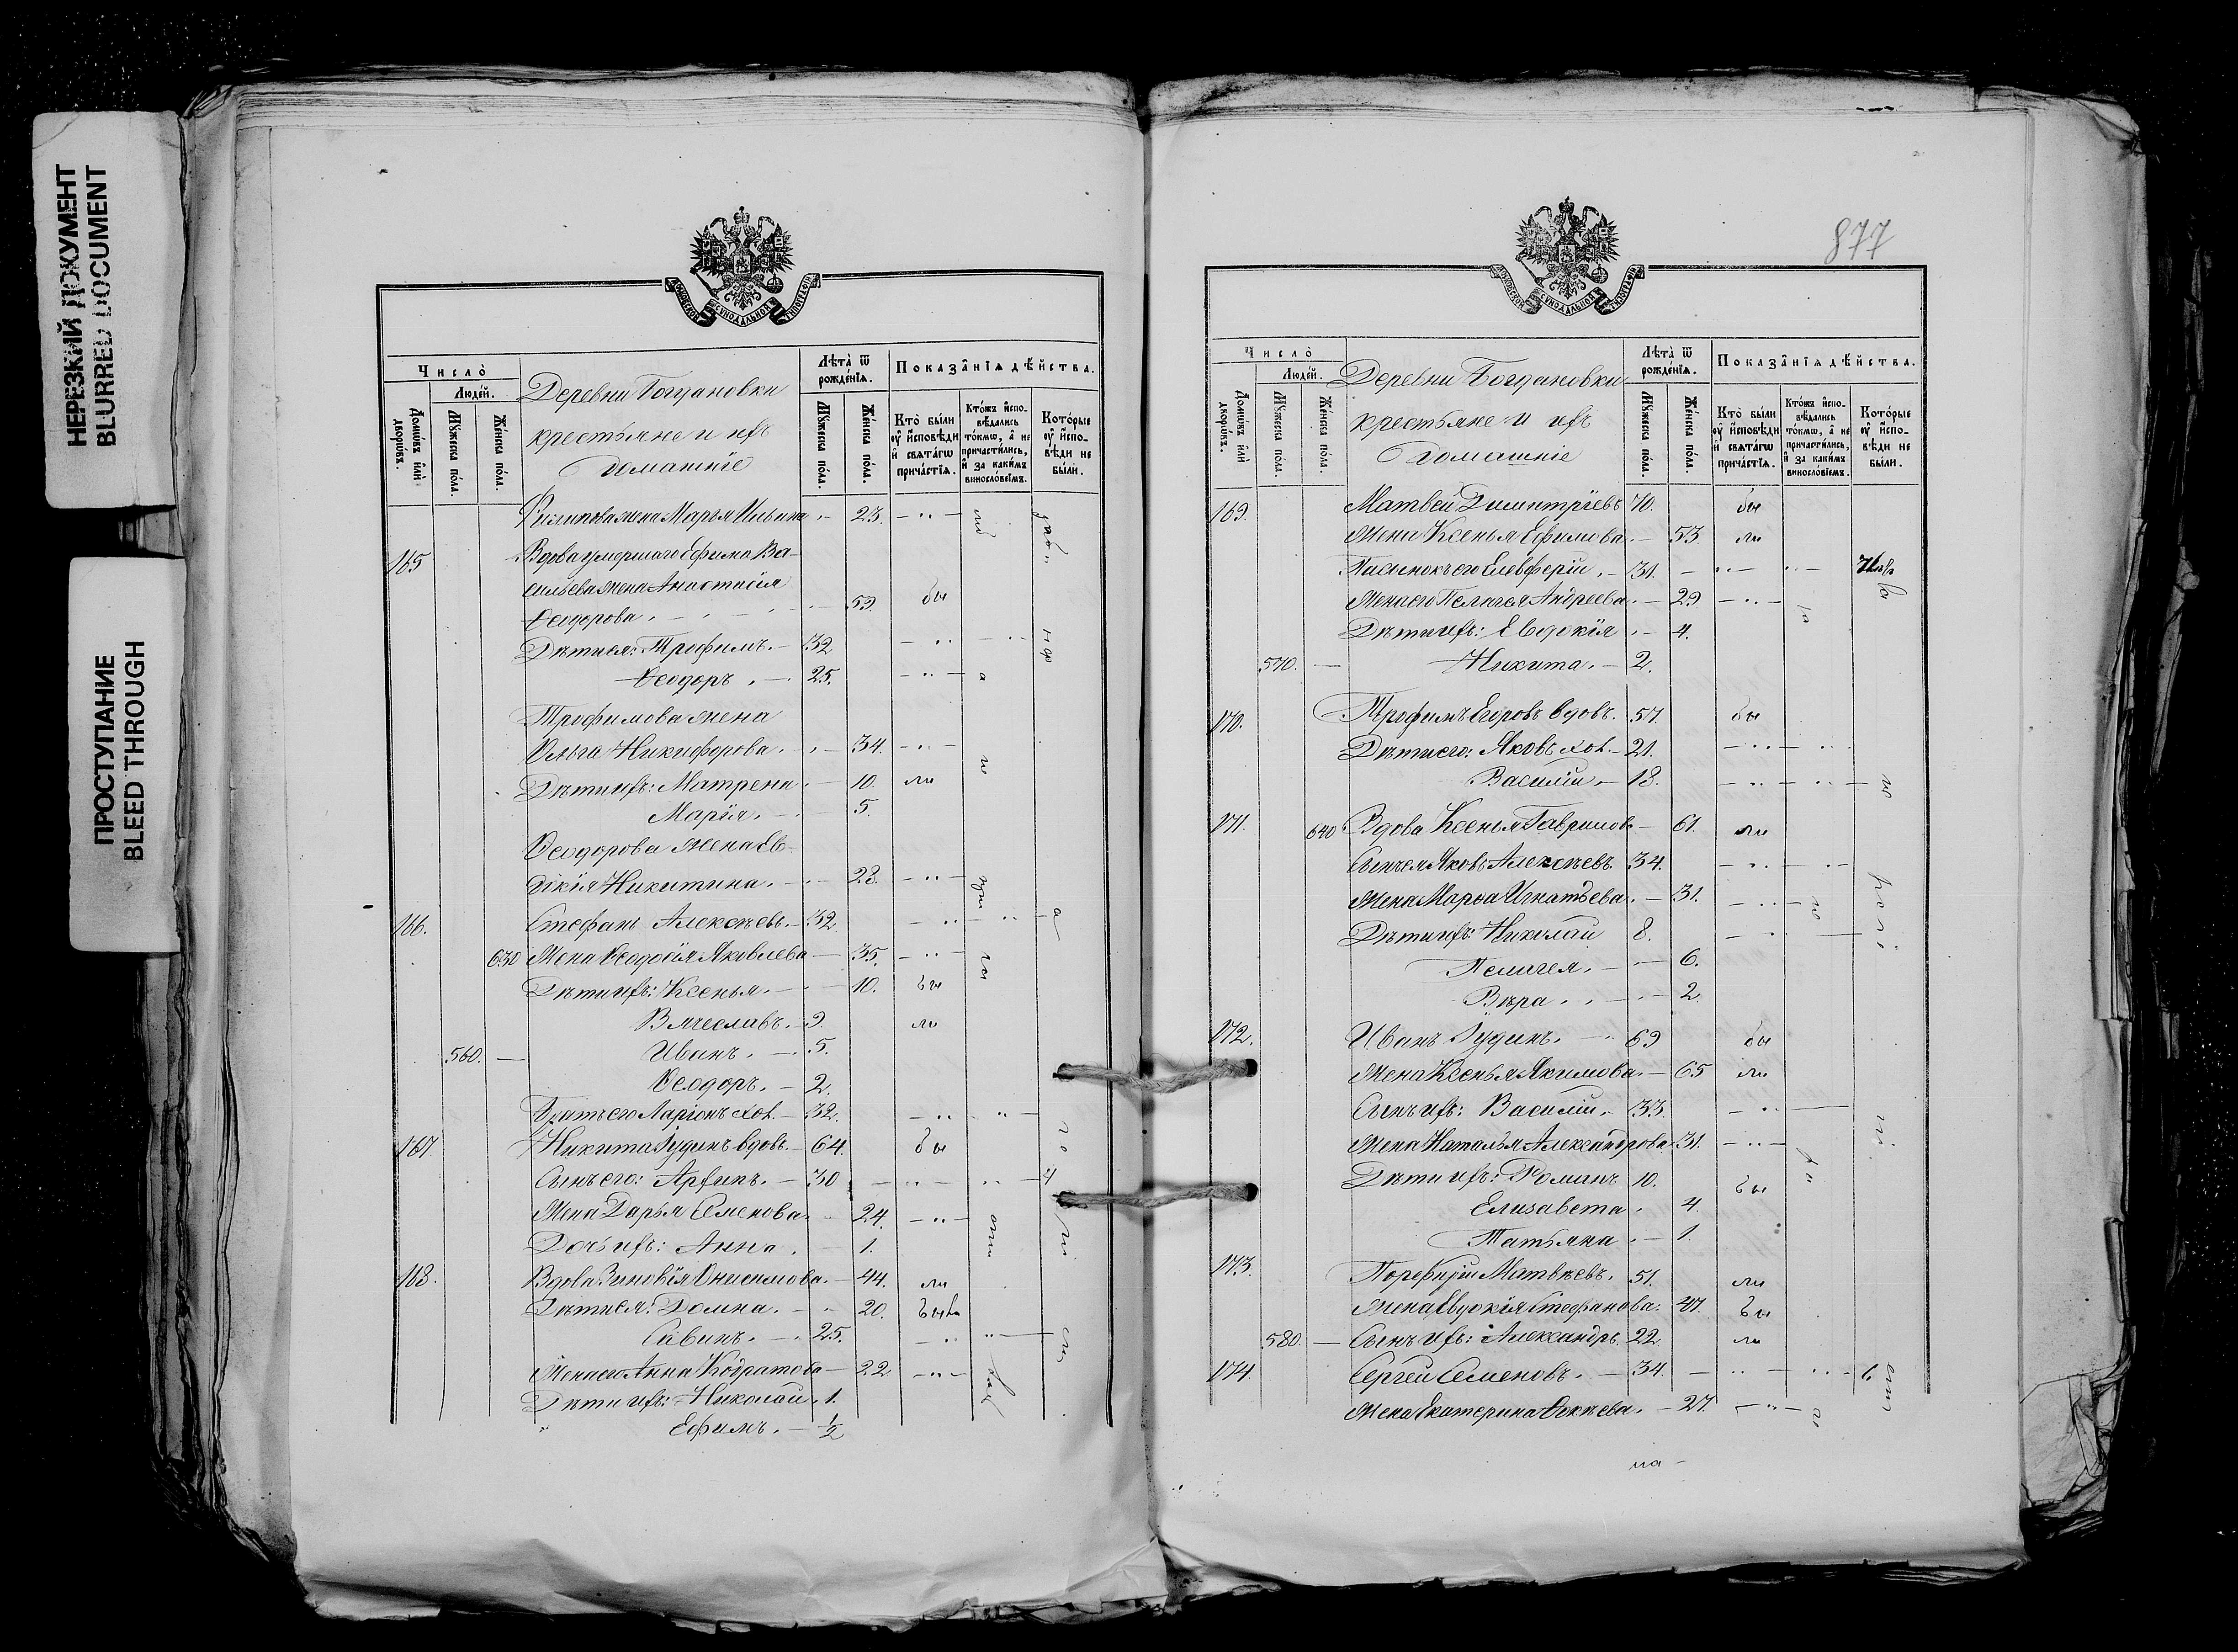 НЕРЕЗКИЙ ДОКУМЕНТ
BLURRED DOCUMENT
ПРОСТУПАНИЕ
BLEED THROUGH
МОСКОВСКОЙ СѴНОДАЛЬНОЙ ТИПОГРАФІИ
Число̀
Людей.
Домѡвъ и҆лѝ дворѡвъ.
Мꙋ́жеска по́ла.
Же́нска по́ла.
Деревни Богдановки
крестьяне и ихъ
домашніе
Лѣта̀ ѿ рожде́нїѧ.
Мꙋ́жеска по́ла.
Же́нска по́ла.
Показа̑нїѧ дѣ́йства.
Кто̀ бы́ли оу҆ и҆сповѣ́ди и҆ свѧта́гѡ прича́стїѧ.
Кто́жъ и҆спо-
вѣ́дались
то́кмѡ, а҆ не
причасти́лись,
и҆ за каки́мъ
винословїемъ.
Кото́рые оу҆ и҆спо-
вѣ́ди не
бы́ли.
Филипова жена Марья Ильина 23.
165 Вдова умершаго Ефима Ва-
сильева жена Анастасія
Ѳеодорова 59. бы
Дѣти ея: Трофимъ. 32
Ѳеодоръ 25.
Трофимова жена
Ольга Никифорова 34.
Дѣти ихъ: Матрена 10. ли
Марія. 5.
Ѳеодорова жена Ев-
докія Никитина. 28.
166. Стефанъ Алексѣевъ. 32.
630 Жена Ѳеодосія Яковлева 35.
Дѣти ихъ: Ксенья. 10. бы
Вячеславъ. 9. ли
560. Иванъ. 5.
Ѳеодоръ. 2.
Братъ его Ларіонъ хол. 32.
167. Никита Іудинъ вдовъ. 64. бы
Сынъ его: Архипъ. 30
Жена Дарья Семенова 24.
Дочь ихъ: Анна. 1.
168. Вдова Зиновія Онисимова. 44. ли
Дѣти ея: Домна. 20. бы
Савинъ. 25.
Жена его Анна Кодратова 22
Дѣти ихъ: Николай 1.
Ефимъ. 1/2
877
МОСКОВСКОЙ СѴНОДАЛЬНОЙ ТИПОГРАФІИ
Число̀
Людей.
Домѡвъ и҆лѝ дворѡвъ.
Мꙋ́жеска по́ла.
Же́нска по́ла.
Деревни Богдановки
крестьяне и ихъ
домашніе
Лѣта̀ ѿ рожде́нїѧ.
Мꙋ́жеска по́ла.
Же́нска по́ла.
Показа̑нїѧ дѣ́йства.
Кто̀ бы́ли оу҆ и҆сповѣ́ди и҆ свѧта́гѡ прича́стїѧ.
Кто́жъ и҆спо-
вѣ́дались
то́кмѡ, а҆ не
причасти́лись,
и҆ за каки́мъ
винословїемъ.
Кото́рые оу҆ и҆спо-
вѣ́ди не
бы́ли.
169. Матвей Димитріевъ 70. бы
Жена Ксенья Ефимова. 53. ли
Пасынокъ его Елевферій 31.
Жена его Пелагея Андреева 29
Дѣти ихъ: Евдокія 4.
570. Никита. 2.
170. Трофимъ Егоровъ вдовъ. 57. бы
Дѣти его: Яковъ хол. 21.
Василій 18.
171. 640 Вдова Ксенья Гаврилова 61. ли
Сынъ ея Яковъ Алексѣевъ 34.
Жена Марѳа Игнатьева. 31.
Дѣти ихъ: Николай 8.
Пелагея. 6.
Вѣра 2.
172. Иванъ Іудинъ. 69 бы
Жена Ксенья Якимова. 65 ли
Сынъ ихъ: Василій. 33.
Жена Наталья Александрова 31.
Дѣти ихъ: Романъ 10. бы
Елизавета. 4.
Татьяна. 1.
173. Порфирій Матвѣевъ. 51. ли
Жена Евдокія Стефанова. 47. бы
580. Сынъ ихъ: Александръ. 22 ли
174. Сергей Семеновъ. 34.
Жена Екатерина 27.